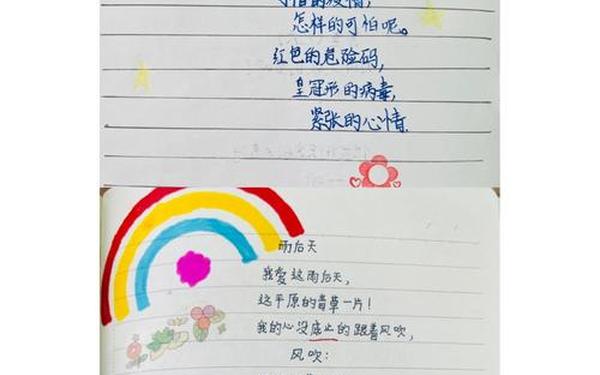 可怕的疫情,
怎样的可怕呢。
红色的危险码,
皇冠形的病毒,
紧张的心情.
雨后天
我爱这雨后天,
这平原的青草一片!
我的心没底止的跟着风吹,
风吹: